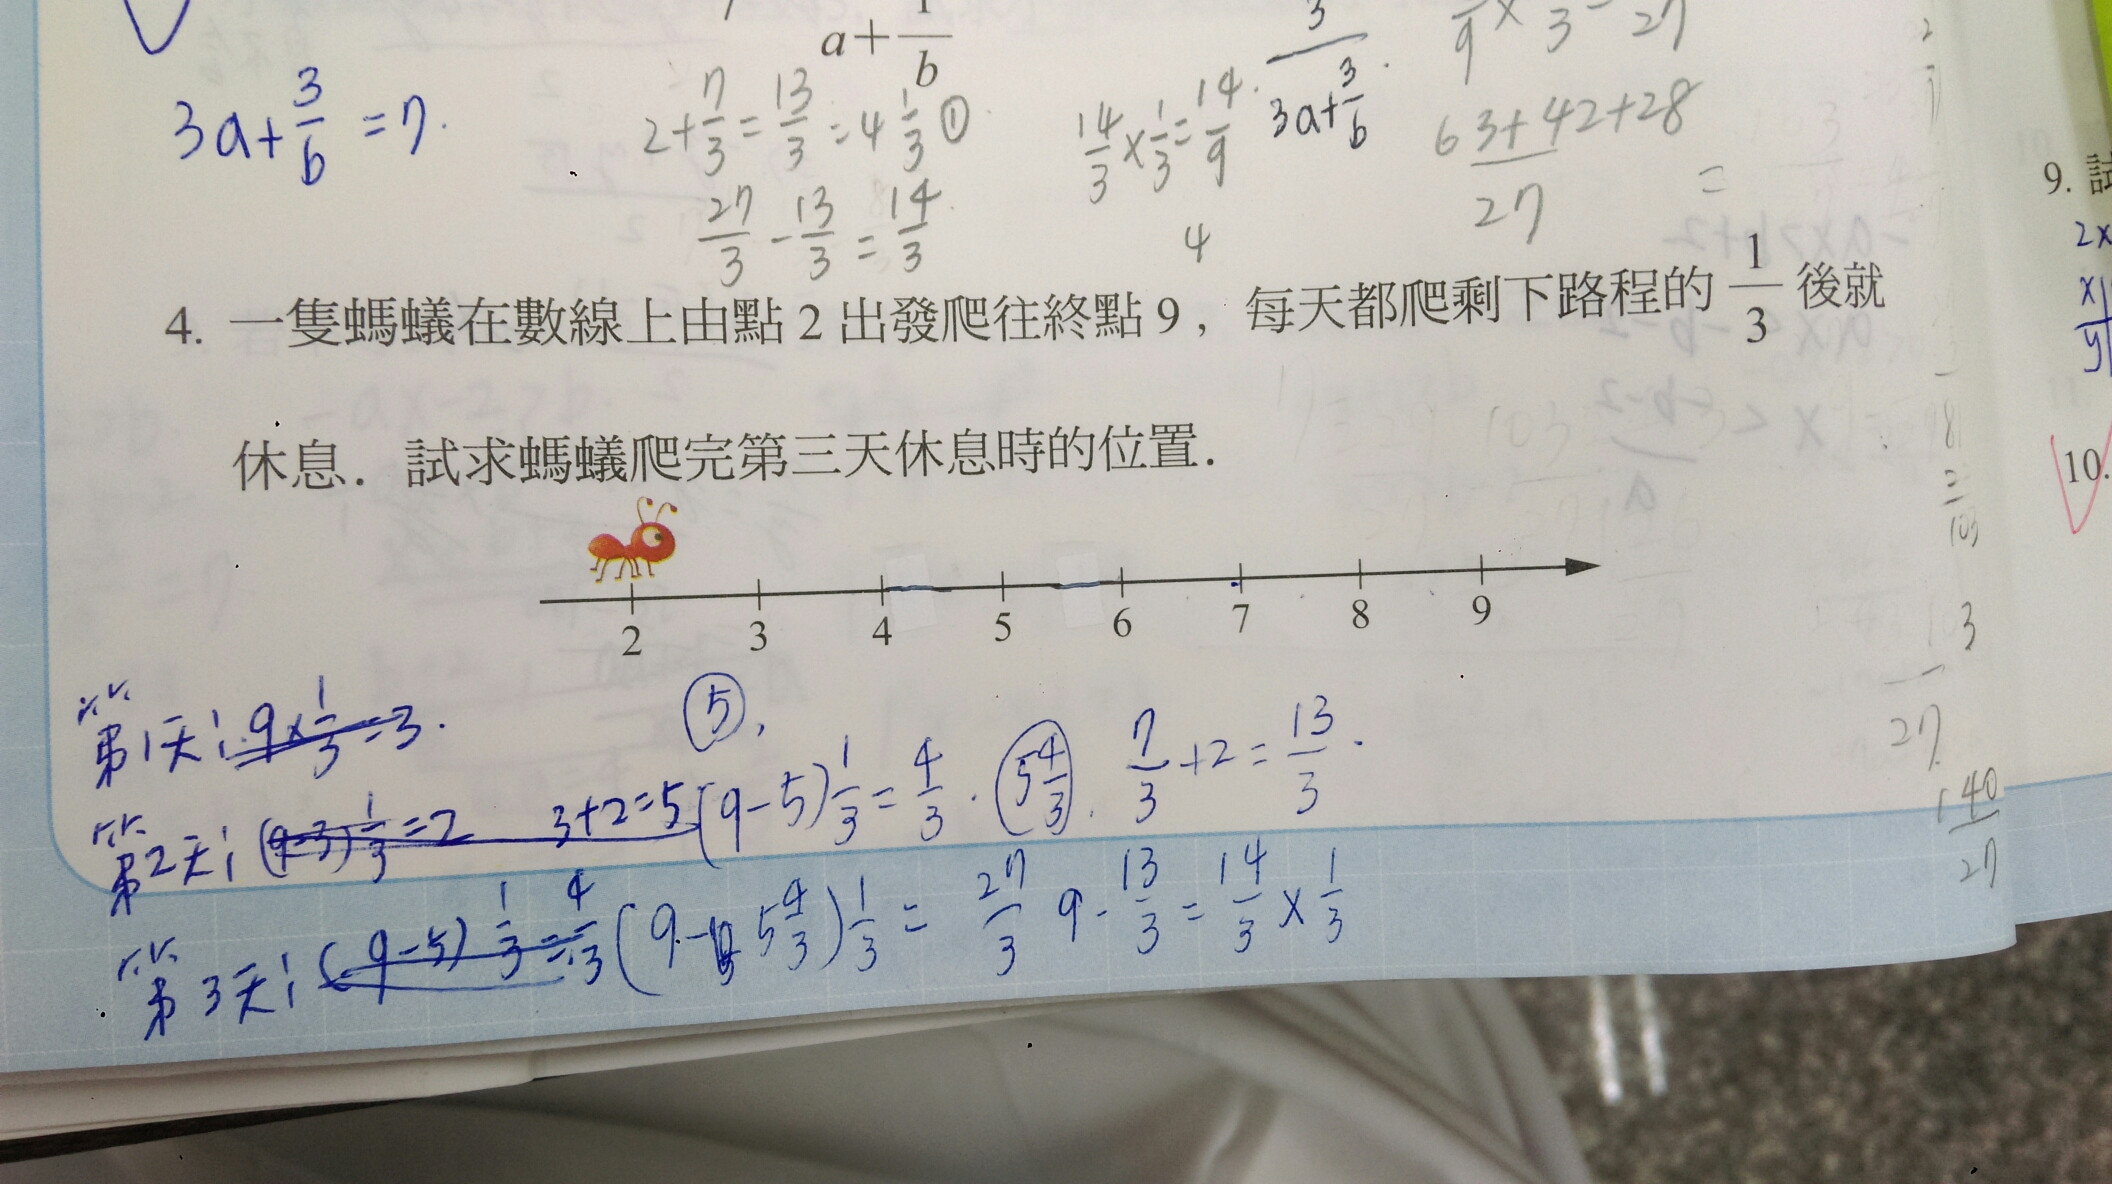 a+1/b
3a+3/b=7.
2+7/3=13/3=4 1/3 ①
27/3-13/3=14/3
14/3×1/3=14/9.
4
3/(3a+3/b).
63+42+28
27
=
4. 一隻螞蟻在數線上由點 2 出發爬往終點 9，每天都爬剩下路程的 1/3 後就
休息．試求螞蟻爬完第三天休息時的位置．
2 3 4 5 6 7 8 9
第1天: 9×1/3=3.
⑤.
第2天: (9-3)1/3=2 3+2=5 (9-5)1/3=4/3. 5 4/3. 7/3+2=13/3.
第3天: (9-5)1/3=4/3 (9-5 4/3)1/3= 27/3 9-13/3=14/3×1/3
27
140/27
9. 試
2x
x
y
10.